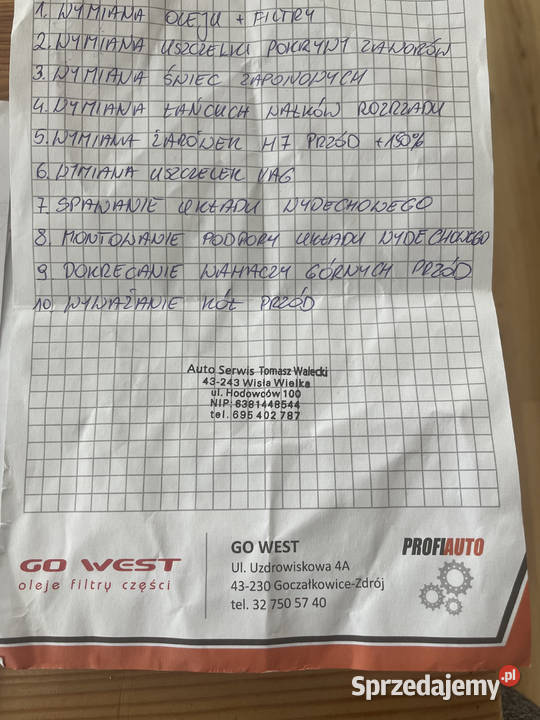 1. WYMIANA OLEJU + FILTRY
2. WYMIANA USZCZELKI POKRYWY ZAWORÓW
3. WYMIANA ŚWIEC ZAPONOWYCH
4. WYMIANA ŁAŃCUCH WAŁKÓW ROZRZADU
5. WYMIANA ŻARÓWEK H7 PRZÓD +150%
6. WYMIANA USZCZELEK VAG
7. SPAWANIE UKŁADU WYDECHOWEGO
8. MONTOWANIE PODPORY UKŁADU WYDECHOWEGO
9. DOKRECANIE WAHACZY GÓRNYCH PRZÓD
10. WYWAŻANIE KÓŁ PRZÓD
Auto Serwis Tomasz Walecki
43-243 Wisła Wielka
ul. Hodowców 100
NIP: 6381448544
tel. 695 402 787
GO WEST
oleje filtry części
GO WEST
Ul. Uzdrowiskowa 4A
43-230 Goczałkowice-Zdrój
tel. 32 750 57 40
PROFIAUTO
Sprzedajemy.pl